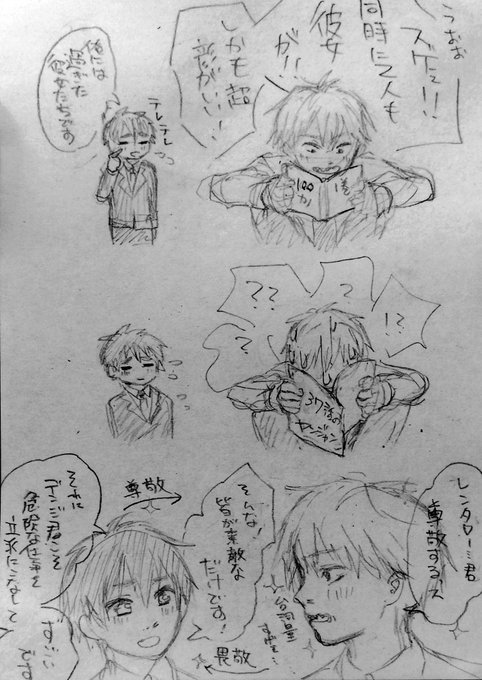 うおお
ズリィ!!
同時に2人も
彼女
が!!
しかも超
顔がいい!
テレテレ
俺には
過ぎた
彼女たちです
100
カノ
1巻
??
?
!?
?
37話の
ヤンジャン
レンタロー君
尊敬するス
尊敬
そんな!
皆が素敵な
だけです!
それに
デンジ君こそ
危険な仕事を
立派にこなして
すごい
です
畏敬